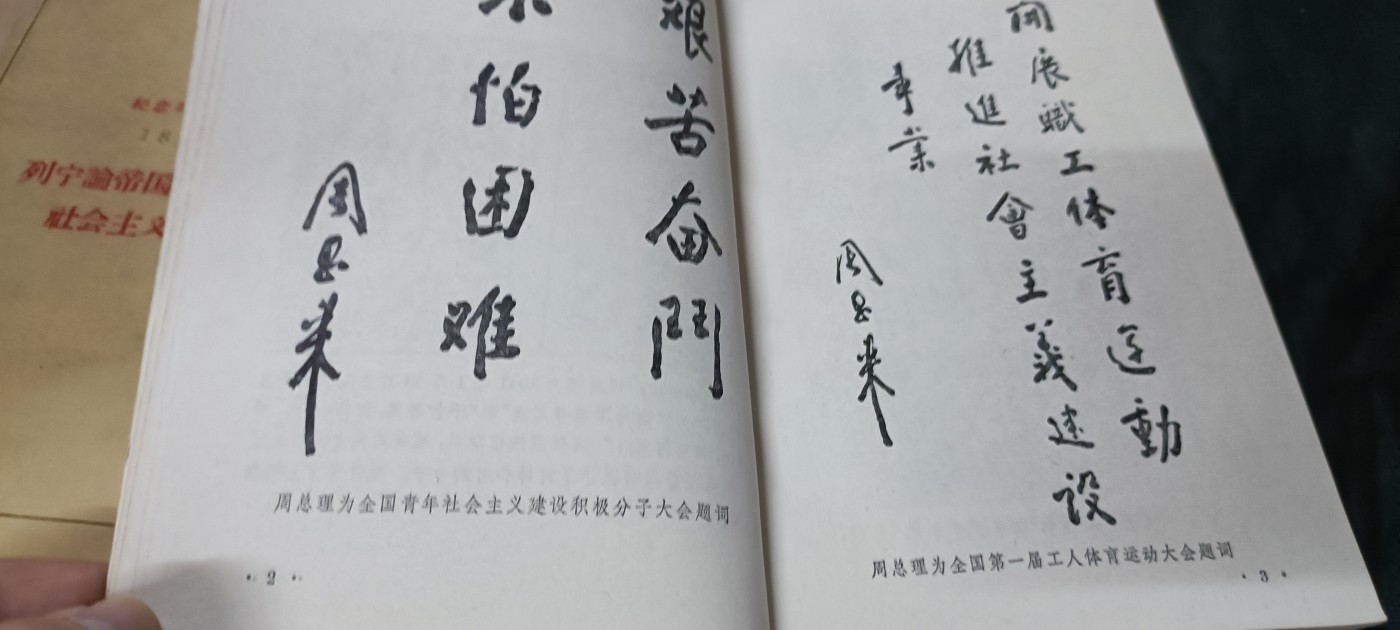 列宁論帝国
社会主义
艰苦奋鬥
不怕困难
周恩来
周总理为全国青年社会主义建设积极分子大会题词
· 2 ·
開展職工体育运動
推進社會主義建设
事業
周恩来
周总理为全国第一届工人体育运动大会题词
· 3 ·